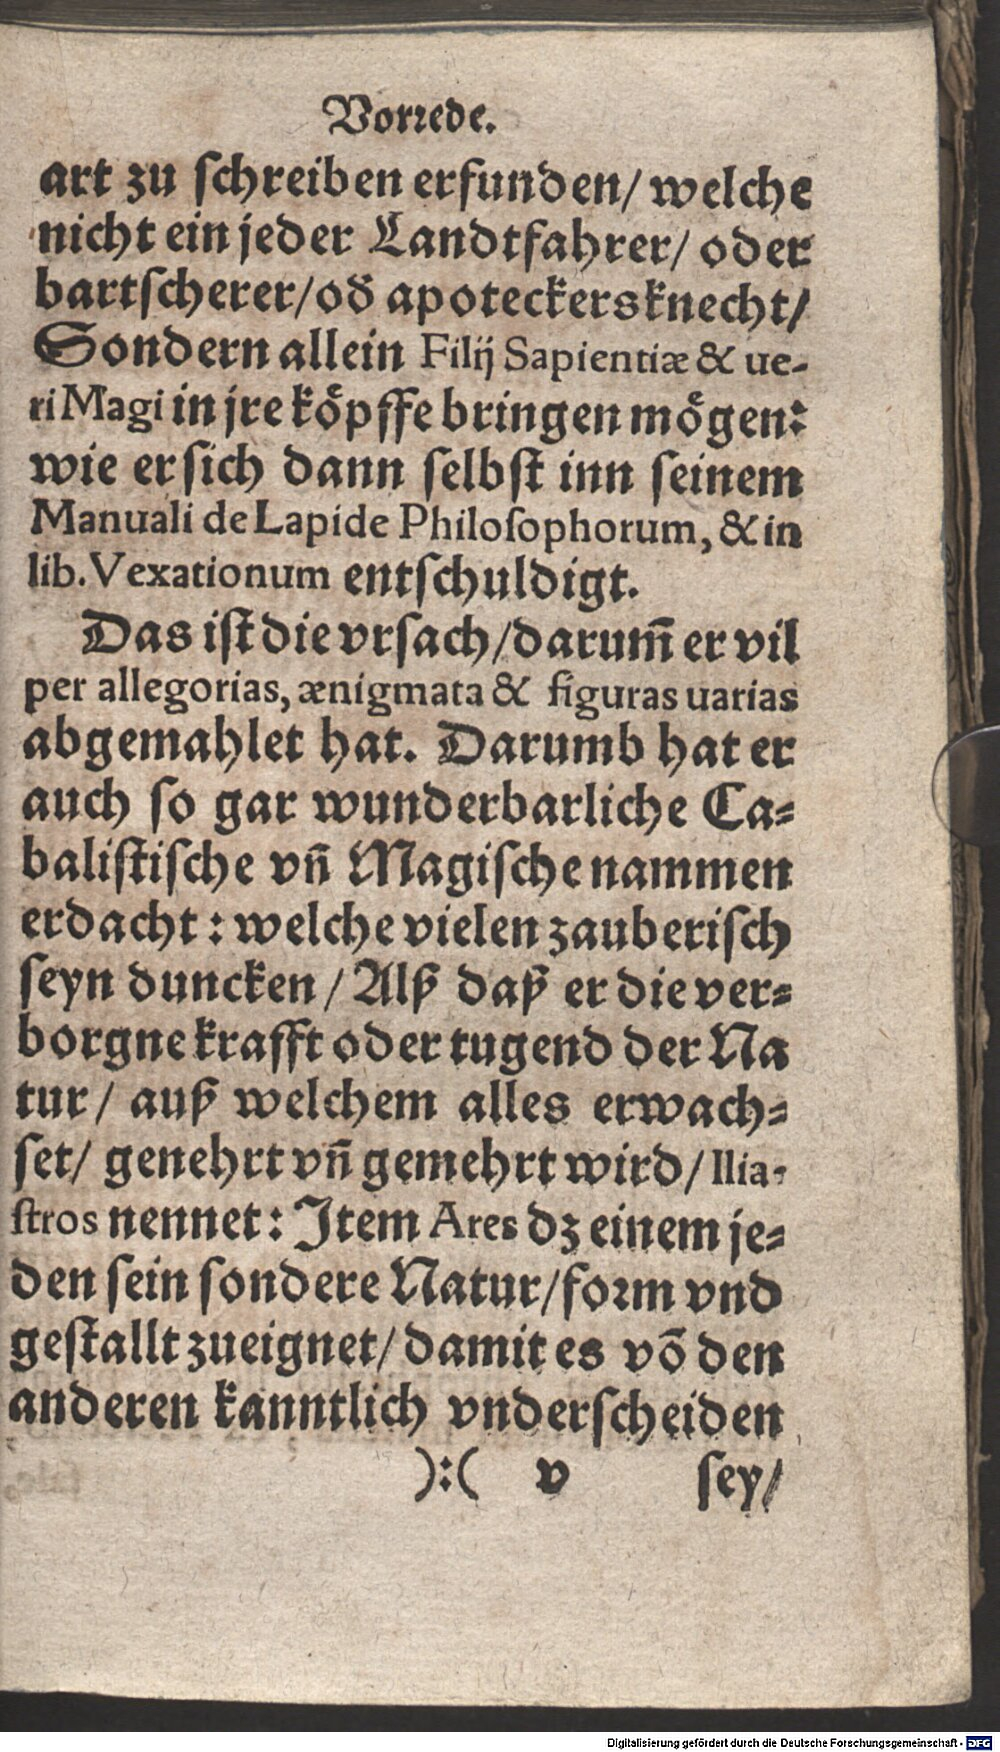 Vorꝛede.
art zu ſchreiben erfunden/ welche
nicht ein jeder Landtfahrer/ oder
bartſcherer/od̄ apoteckersknecht/
Sondern allein Filij Sapientiæ & ue-
ri Magi in jre koͤpffe bringen moͤgen:
wie er ſich dann ſelbſt inn ſeinem
Manuali de Lapide Philoſophorum, & in
lib. Vexationum entſchuldigt.
Das iſt die vrſach/darum̃ er vil
per allegorias, ænigmata & figuras uarias
abgemahlet hat. Darumb hat er
auch ſo gar wunderbarliche Ca⸗
baliſtiſche vñ Magiſche nammen
erdacht: welche vielen zauberiſch
ſeyn duncken/ Alß daß er die ver⸗
borgne krafft oder tugend der Na
tur/ auß welchem alles erwach⸗
ſet/ genehrt vñ gemehrt wird/ Ilia-
ſtros nennet: Item Ares dz einem je⸗
den ſein ſondere Natur/foꝛm vnd
geſtallt zueignet/ damit es võ den
anderen kanntlich vnderſcheiden
):( v ſey/
Digitalisierung gefördert durch die Deutsche Forschungsgemeinschaft - DFG